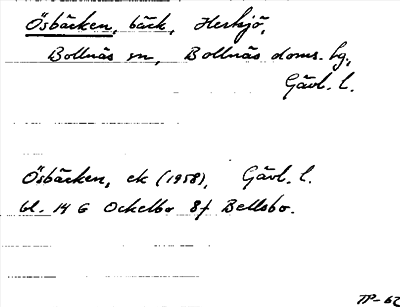 Ösbäcken, bäck, Herkjö,
Bollnäs sn, Bollnäs doms. hg,
Gävl. l.
Ösbäcken, ek (1958), Gävl. l.
bl. 14 G Ockelbo 8f Bellsbo.
TP-62